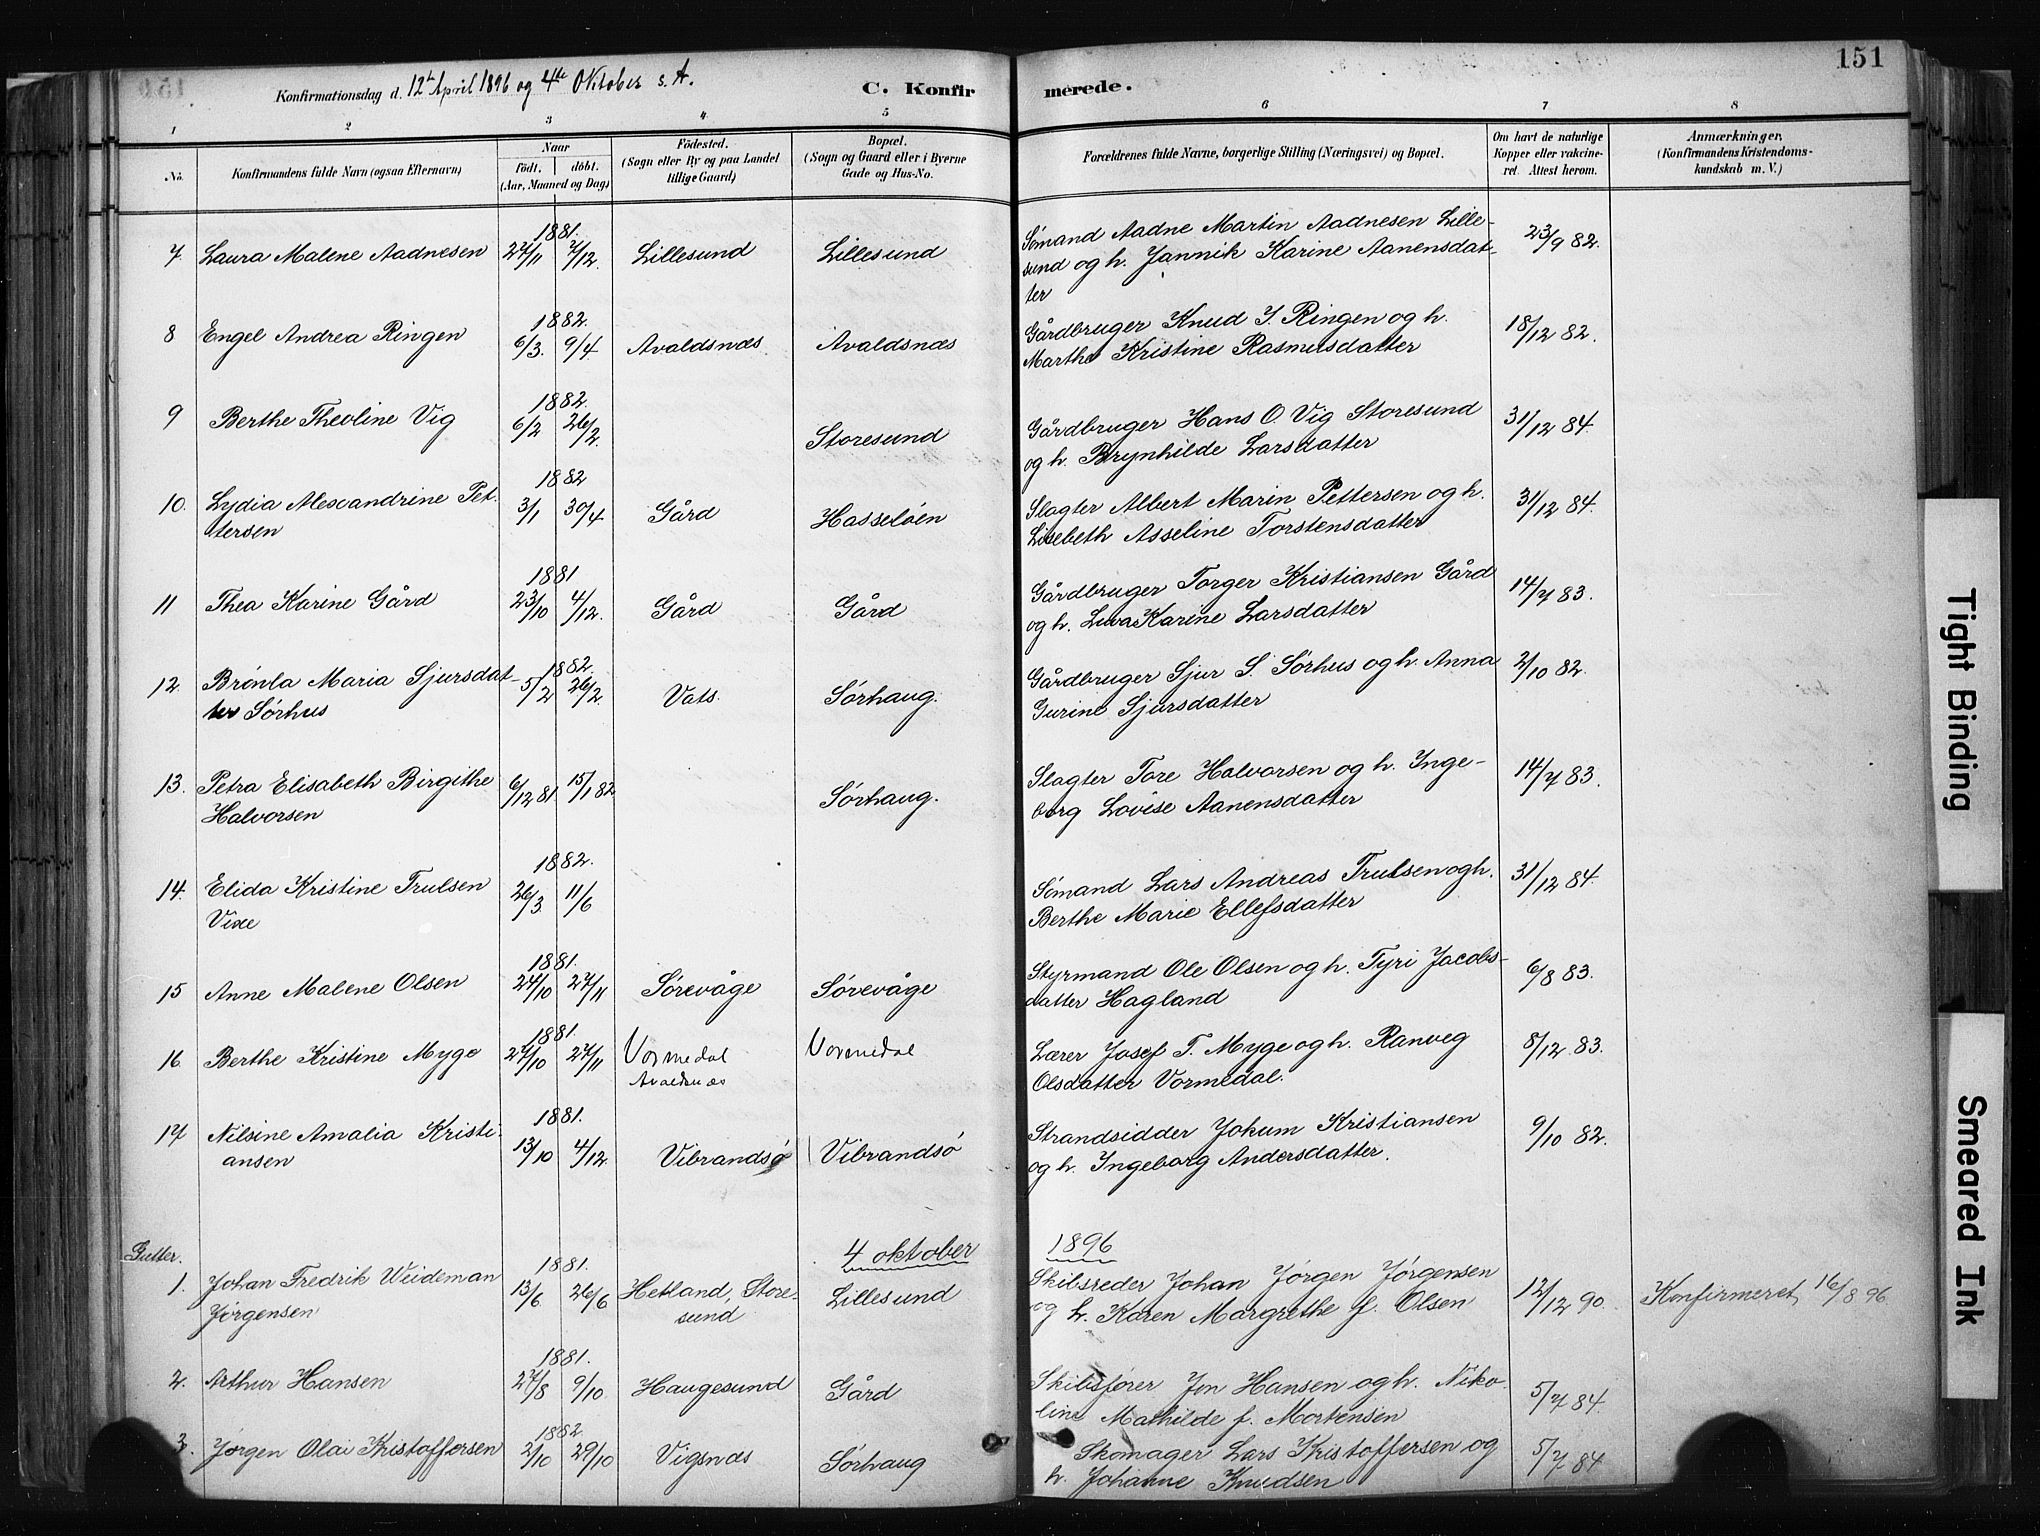 151
Konfirmationsdag d. 12te April 1896 og 4de Oktober s. A.
C. Konfirmerede.
1 2 3 4 5 6 7 8
No. Konfirmandens fulde Navn (ogsaa Efternavn) Naar födt. döbt. (Aar, Maaned og Dag) Födested. (Sogn eller By og paa Landet tillige Gaard) Bopæl. (Sogn og Gaard eller i Byerne Gade og Hus-No. Forældrenes fulde Navne, borgerlige Stilling (Næringsvei) og Bopæl. Om havt de naturlige Kopper eller vakcineret. Attest herom. Anmærkninger. (Konfirmandens Kristendomskundskab m. V.)
1881.
7. Laura Malene Aadnesen 27/11 7/12. Lillesund Lillesund Sømand Aadne Martin Aadnesen Lille-
sund og h. Jannik Karine Aanensdat-
ter 23/9 82.
1882.
8 Engel Andrea Ringen 6/3. 9/4 Avaldsnæs Avaldsnæs Gårdbruger Knud J. Ringen og h.
Marthe Kristine Rasmusdatter 18/12 82.
1882.
9 Berthe Theoline Vig 6/2 26/2. Storesund Gårdbruger Hans O. Vig Storesund
og h. Brynhilde Larsdatter 31/12 84.
1882
10. Lydia Alexandrine Pet-
tersen 3/1 30/4 Gård Hasseløen Slagter Albert Marin Pettersen og h.
Lisebeth Asseline Torstensdatter 31/12 84.
1881
11 Thea Karine Gård 23/10 4/12. Gård Gård Gårdbruger Torger Kristiansen Gård
og h. Karine Larsdatter 14/7 83.
1882.
12. Brønla Maria Sjursdat-
ter Sørhus 5/2 26/2. Vats. Sørhaug. Gårdbruger Sjur S. Sørhus og h. Anna
Gurine Sjursdatter 2/10 82.
13. Petra Elisabeth Birgithe
Halvorsen 6/12 81 15/1 82 Sørhaug. Slagter Tore Halvorsen og h. Inge-
borg Lovise Aanensdatter 14/7 83.
1882.
14. Elida Kristine Trulsen
Vixe 26/3 11/6 Sømand Lars Andreas Trulsen og h.
Berthe Marie Ellefsdatter 31/12 84.
1881.
15 Anne Malene Olsen 24/10 27/11 Sørevåge Sørevåge Styrmand Ole Olsen og h. Tyri Jacobs-
datter Hagland 6/8 83.
1881.
16. Berthe Kristine Myge 27/10 27/11 Vormedal
Avaldsnæs Vormedal Lærer Josef T. Myge og h. Ranveg
Olsdatter Vormedal. 8/12 83.
1881.
17 Nilsine Amalia Kristi-
ansen 13/10 4/12 Vibrandsø Vibrandsø Strandsidder Jokum Kristiansen
og h. Ingeborg Andersdatter. 9/10 82.
4 oktober 1896
Gutter.
1881.
1. Johan Fredrik Weideman
Jørgensen 13/6 26/6 Hetland, Store-
sund Lillesund Skibsreder Johan Jørgen Jørgensen
og h. Karen Margrethe f. Olsen 12/12 90. Konfirmeret, 16/8 96.
1881.
2. Arthur Hansen 27/8 9/10 Haugesund Gård Skibsfører Jon Hansen og h. Niko-
line Mathilde f. Mortensen 5/7 84.
1882
3. Jørgen Olai Kristoffersen 2/10 29/10 Vigsnæs Sørhaug Skomager Lars Kristoffersen og
h. Johanne Knudsen 5/7 84
Tight Binding
Smeared Ink